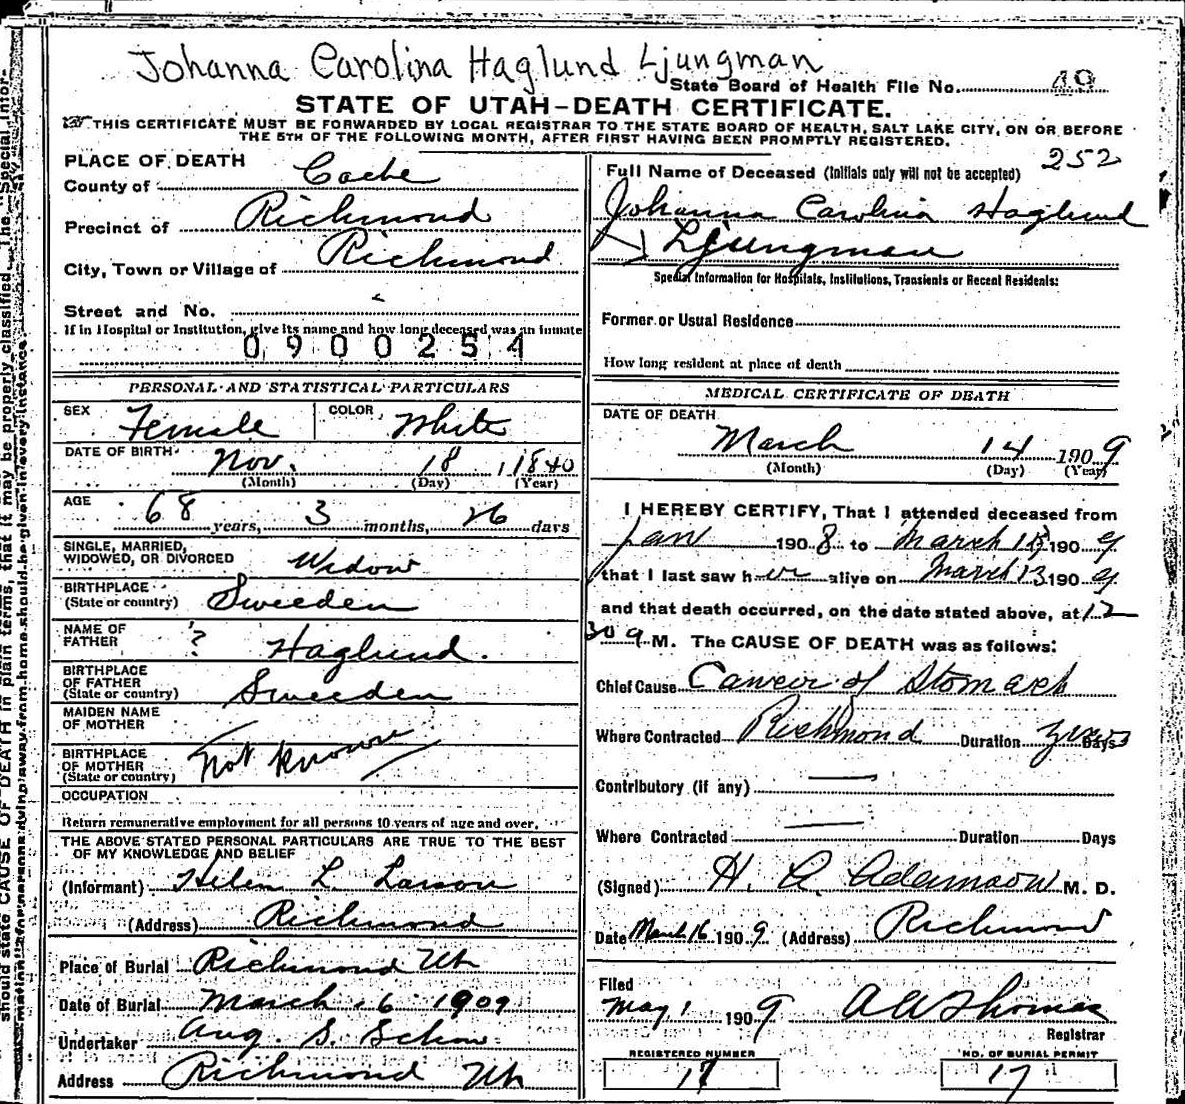 Johanna Carolina Haglund Ljungman
State Board of Health File No. 49
STATE OF UTAH-DEATH CERTIFICATE.
THIS CERTIFICATE MUST BE FORWARDED BY LOCAL REGISTRAR TO THE STATE BOARD OF HEALTH, SALT LAKE CITY, ON OR BEFORE
THE 5TH OF THE FOLLOWING MONTH, AFTER FIRST HAVING BEEN PROMPTLY REGISTERED.
252
PLACE OF DEATH
County of Cache
Precinct of Richmond
City, Town or Village of Richmond
Street and No.
If in Hospital or Institution, give its name and how long deceased was an inmate
0900254
PERSONAL AND STATISTICAL PARTICULARS
SEX Female COLOR White
DATE OF BIRTH Nov. 18 1840
(Month) (Day) (Year)
AGE 68 years, 3 months, 26 days
SINGLE, MARRIED,
WIDOWED, OR DIVORCED Widow
BIRTHPLACE
(State or country) Sweeden
NAME OF
FATHER ? Haglund.
BIRTHPLACE
OF FATHER
(State or country) Sweeden
MAIDEN NAME
OF MOTHER
BIRTHPLACE
OF MOTHER
(State or country) not known
OCCUPATION
Return remunerative employment for all persons 10 years of age and over.
THE ABOVE STATED PERSONAL PARTICULARS ARE TRUE TO THE BEST
OF MY KNOWLEDGE AND BELIEF
(Informant) Helen L Larson
(Address) Richmond
Place of Burial Richmond Ut
Date of Burial March 16 1909
Undertaker Aug. S. Schow
Address Richmond Ut
Full Name of Deceased (Initials only will not be accepted)
Johanna Carolina Haglund
Ljungman
Special Information for Hospitals, Institutions, Transients or Recent Residents:
Former or Usual Residence
How long resident at place of death
MEDICAL CERTIFICATE OF DEATH
DATE OF DEATH
March 14 1909
(Month) (Day) (Year)
I HEREBY CERTIFY, That I attended deceased from
Jan 1908 to March 1909
that I last saw her alive on March 13 1909
and that death occurred, on the date stated above, at 12
30 a M. The CAUSE OF DEATH was as follows:
Chief Cause Cancer of Stomach
Where Contracted Richmond Duration years Days
Contributory (if any) —
Where Contracted — Duration Days
(Signed) H. A. Adamson M. D.
Date March 16 1909 (Address) Richmond
Filed
May 1 1909 A A Thomas
Registrar
REGISTERED NUMBER NO. OF BURIAL PERMIT
17 17
should state CAUSE OF DEATH in plain terms, that it may be properly classified. The "Special Infor-
mation" for persons dying away from home should be given in every instance.